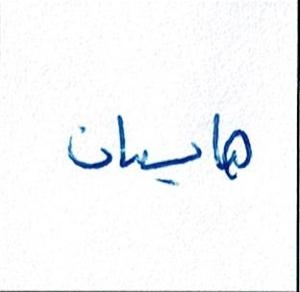 هاسیان